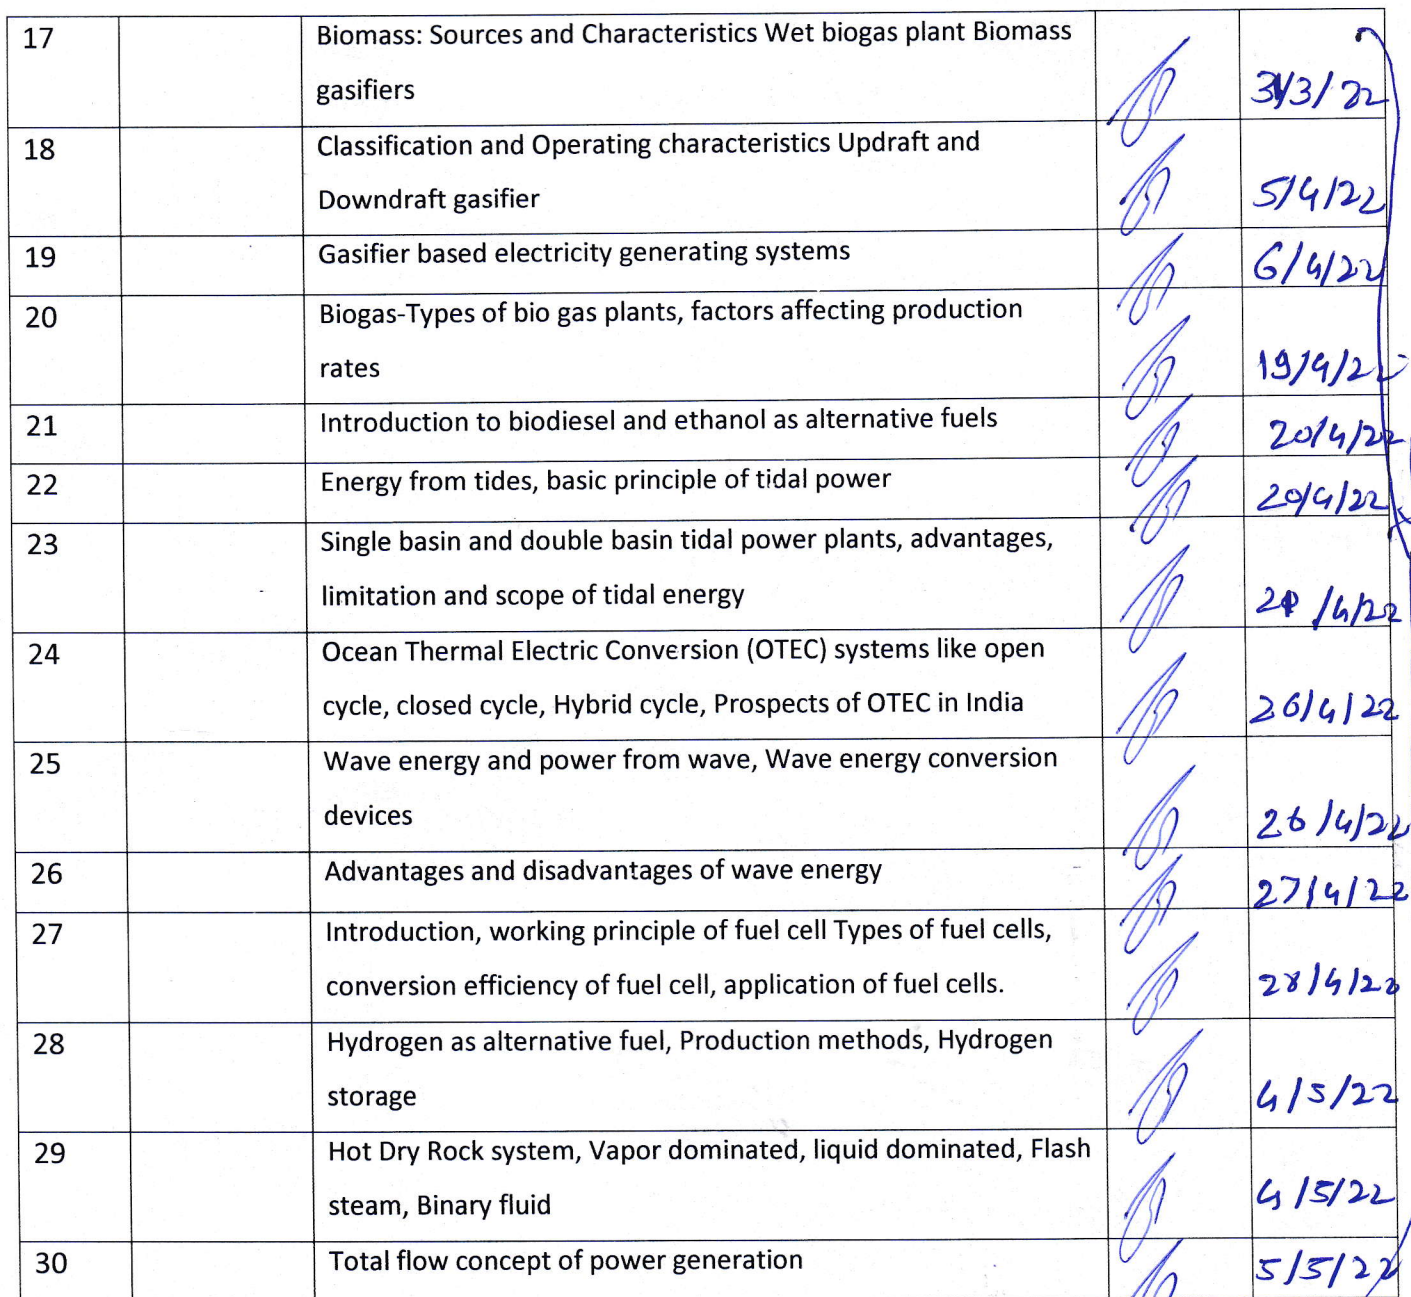 17 Biomass: Sources and Characteristics Wet biogas plant Biomass
gasifiers 31/3/22
18 Classification and Operating characteristics Updraft and
Downdraft gasifier 5/4/22
19 Gasifier based electricity generating systems 6/4/22
20 Biogas-Types of bio gas plants, factors affecting production
rates 19/4/22
21 Introduction to biodiesel and ethanol as alternative fuels 20/4/22
22 Energy from tides, basic principle of tidal power 20/4/22
23 Single basin and double basin tidal power plants, advantages,
limitation and scope of tidal energy 21/4/22
24 Ocean Thermal Electric Conversion (OTEC) systems like open
cycle, closed cycle, Hybrid cycle, Prospects of OTEC in India 26/4/22
25 Wave energy and power from wave, Wave energy conversion
devices 26/4/22
26 Advantages and disadvantages of wave energy 27/4/22
27 Introduction, working principle of fuel cell Types of fuel cells,
conversion efficiency of fuel cell, application of fuel cells. 28/4/22
28 Hydrogen as alternative fuel, Production methods, Hydrogen
storage 4/5/22
29 Hot Dry Rock system, Vapor dominated, liquid dominated, Flash
steam, Binary fluid 4/5/22
30 Total flow concept of power generation 5/5/22